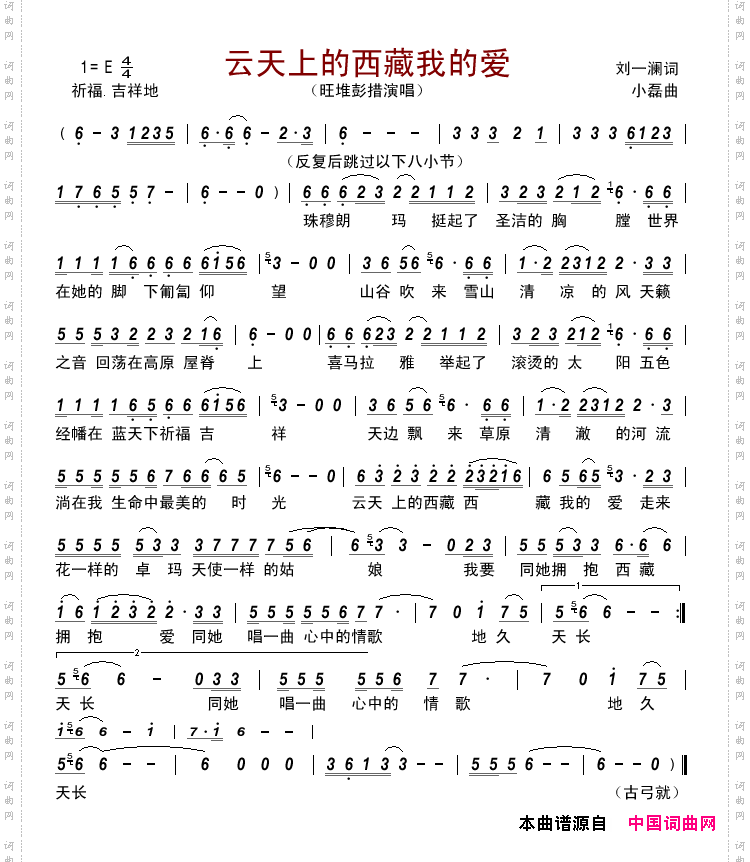 云天上的西藏我的爱
1=E 4/4
刘一澜词
祈福.吉祥地
（旺堆彭措演唱）
小磊曲
（ 6 - 3 1235 | 6·6 6 - 2·3 | 6 - - - | 3 3 3 2 1 | 3 3 3 6123 |
（反复后跳过以下八小节）
1765 5 7 - | 6 - - 0 ）| 6 6 6 2 3 2 2 1 1 2 | 3 2 3 2 1 2 1 6 · 6 6 |
珠穆朗 玛 挺起了 圣洁的 胸 膛 世界
1 1 1 1 6 6 6 6 6156 | 5 3 - 0 0 | 3 6 5 6 5 6 · 6 6 | 1·2 2312 2 · 3 3 |
在她的 脚 下匍匐 仰 望 山谷 吹 来 雪山 清 凉 的 风 天籁
5 5 5 3 2 2 3 2 1 6 | 6 - 0 0 | 6 6 6 2 3 2 2 1 1 2 | 3 2 3 2 1 2 1 6 · 6 6 |
之音 回荡在高原 屋脊 上 喜马拉 雅 举起了 滚烫的 太 阳 五色
1 1 1 1 6 5 6 6 6156 | 5 3 - 0 0 | 3 6 5 6 5 6 · 6 6 | 1·2 2312 2 · 3 |
经幡在 蓝天下祈福 吉 祥 天边 飘 来 草原 清 澈 的河 流
5 5 5 5 5 6 7 6 6 6 5 | 5 6 - - 0 | 6 3 2 3 2 2 23216 | 6 5 6 5 5 3 · 2 3 |
淌在我 生命中最美的 时 光 云天 上的西藏 西 藏 我的 爱 走来
5 5 5 5 5 3 3 3 7 7 7 7 5 6 | 6 5 3 3 - 0 2 3 | 5 5 5 3 3 6·6 6 |
花一样的 卓 玛 天使一样 的姑 娘 我要 同她拥 抱 西 藏
1 6 1 2 3 2 2 · 3 3 | 5 5 5 5 5 6 7 7 · | 7 0 1 7 5 | 1 5 5 6 6 - - :||
拥 抱 爱 同她 唱一曲 心中的情歌 地 久 天 长
2
5 5 6 6 - 0 3 3 | 5 5 5 5 5 6 7 7 · | 7 0 1 7 5 |
天 长 同她 唱一曲 心中的 情 歌 地 久
1 5 6 6 - 1 | 7·1 6 - - |
5 5 6 6 - - | 6 0 0 0 | 3 6 1 3 3 - - | 5 5 5 6 - - | 6 - - 0 ）||
天长
（古弓就）
本曲谱源自 中国词曲网
词曲网